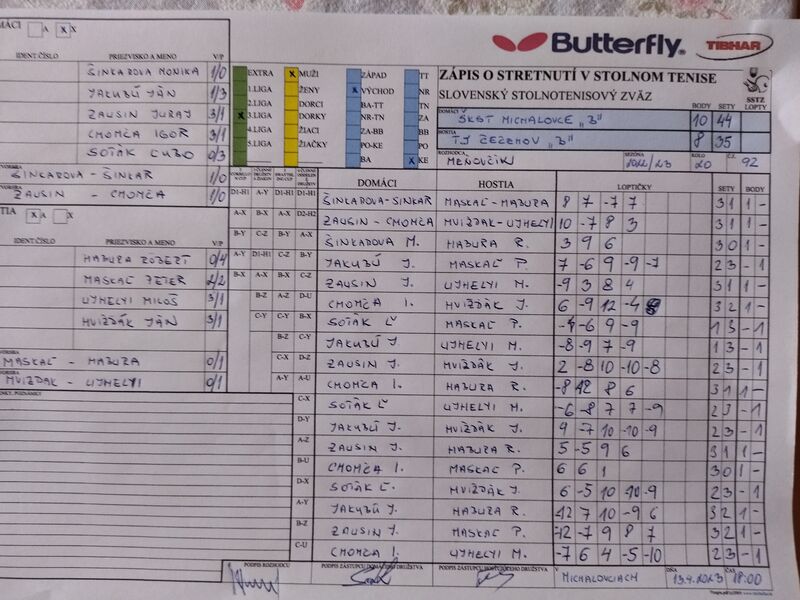 MÁCI A X X
IDENT.ČÍSLO PRIEZVISKO A MENO V/P
ŠINKAROVA MONIKA 1/0
JAKUBÚ JÁN 1/3
ZAUSIN JURAJ 3/1
CHOMČA IGOR 3/1
SOTÁK ĽUBO 0/3
ŠINKAROVA - ŠINKAŘ 1/0
ZAUSIN - CHOMČA 1/0
TIA X A X
IDENT.ČÍSLO PRIEZVISKO A MENO V/P
HABURA ROBERT 0/4
MASKAĽ PETER 2/2
UJHELYI MILOŠ 3/1
HVIZDÁK JÁN 3/1
MASKAĽ - HABURA 0/1
HVIZDÁK - UJHELYI 0/1
Butterfly TIBHAR
EXTRA X MUŽI ZÁPAD TT
1.LIGA ŽENY X VÝCHOD NR
2.LIGA DORCI BA-TT TN
X 3.LIGA DORKY NR-TN ZA
4.LIGA ŽIACI ZA-BB BB
5.LIGA ŽIAČKY KO-PE PO
BA X KE
ZÁPIS O STRETNUTÍ V STOLNOM TENISE
SLOVENSKÝ STOLNOTENISOVÝ ZVÄZ SSTZ
DOMÁCI ŠKST MICHALOVCE „B" BODY 10 SETY 44 LOPTY
HOSTIA TJ ČEČEHOV „B" 8 35
ROZHODCA MEŇOVČÍK SEZÓNA 2022/23 KOLO 20 Č.Z. 92
DOMÁCI HOSTIA LOPTIČKY SETY BODY
ŠINKAROVA-ŠINKAŘ MASKAĽ-HABURA 8 7 -7 7 3 1 1 -
ZAUSIN - CHOMČA HVIZDAK-UJHELYI 10 -7 8 3 3 1 1 -
ŠINKAROVA M. HABURA R. 3 9 6 3 0 1 -
JAKUBÚ J. MASKAĽ P. 7 -6 9 -9 -7 2 3 - 1
ZAUSIN J. UJHELYI M. -9 3 8 4 3 1 1 -
CHOMČA I. HVIZDÁK J. 6 -9 12 -4 3 2 1 -
SOTÁK Ľ MASKAĽ P. -4 -6 9 -9 1 3 - 1
JAKUBÚ J UJHELYI M. -8 -9 7 -9 1 3 - 1
ZAUSIN J. HVIZDÁK J. 2 -8 10 -10 -8 2 3 - 1
CHOMČA I. HABURA R. -8 12 8 6 3 1 1 -
SOTÁK Ľ UJHELYI M. -6 -8 7 7 -9 2 3 - 1
JAKUBÚ J. HVIZDÁK J. 9 -7 10 -10 -9 2 3 - 1
ZAUSIN J. HABURA R. 5 -5 9 6 3 1 1 -
CHOMČA I. MASKAĽ P. 6 6 1 3 0 1 -
SOTÁK Ľ. HVIZDÁK J. 6 -5 10 -10 -9 2 3 - 1
JAKUBÚ J. HABURA R. 12 7 10 -9 6 3 2 1 -
ZAUSIN J. MASKAĽ P. -12 -7 9 8 7 3 2 1 -
CHOMČA I. UJHELYI M. -7 6 4 -5 -10 2 3 - 1
PODPIS ROZHODCU PODPIS ZÁSTUPCU DOMÁCEHO DRUŽSTVA PODPIS ZÁSTUPCU HOSŤUJÚCEHO DRUŽSTVA V MICHALOVCIACH DŇA 13.4.2023 ČAS 18:00